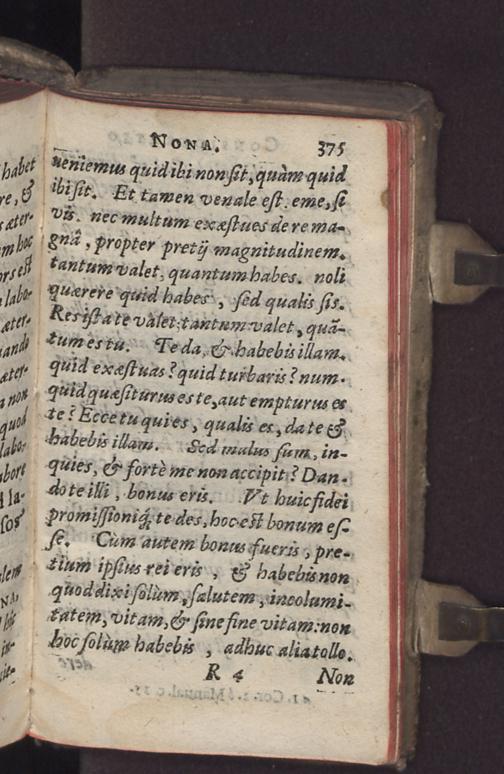 NONA. 375
ueniemus quid ibi non sit, quàm quid
ibi sit. Et tamen venale est. eme, si
vis. nec multum exæstues de re ma-
gnâ, propter pretij magnitudinem.
tantum valet, quantum habes. noli
quærere quid habes, sed qualis sis.
Res ista te valet; tantum valet, quā-
tum es tu. Te da, & habebis illam.
quid exæstuas? quid turbaris? num-
quid quæsiturus es te, aut empturus es
te? Ecce tu qui es, qualis es, da te &
habebis illam. Sed malus sum, in-
quies, & fortè me non accipit? Dan-
do te illi, bonus eris. Vt huic fidei
promissioniq́; te des, hoc est bonum es-
se. Cùm autem bonus fueris, pre-
tium ipsius rei eris, & habebis non
quod dixi solùm, salutem, incolumi-
tatem, vitam, & sine fine vitam: non
hoc solùm habebis, adhuc alia tollo.
R 4 Non
habet
re, &
æter-
m hoc
ors est
labo-
æter-
a non
quod
labo-
bore
NA.
in-